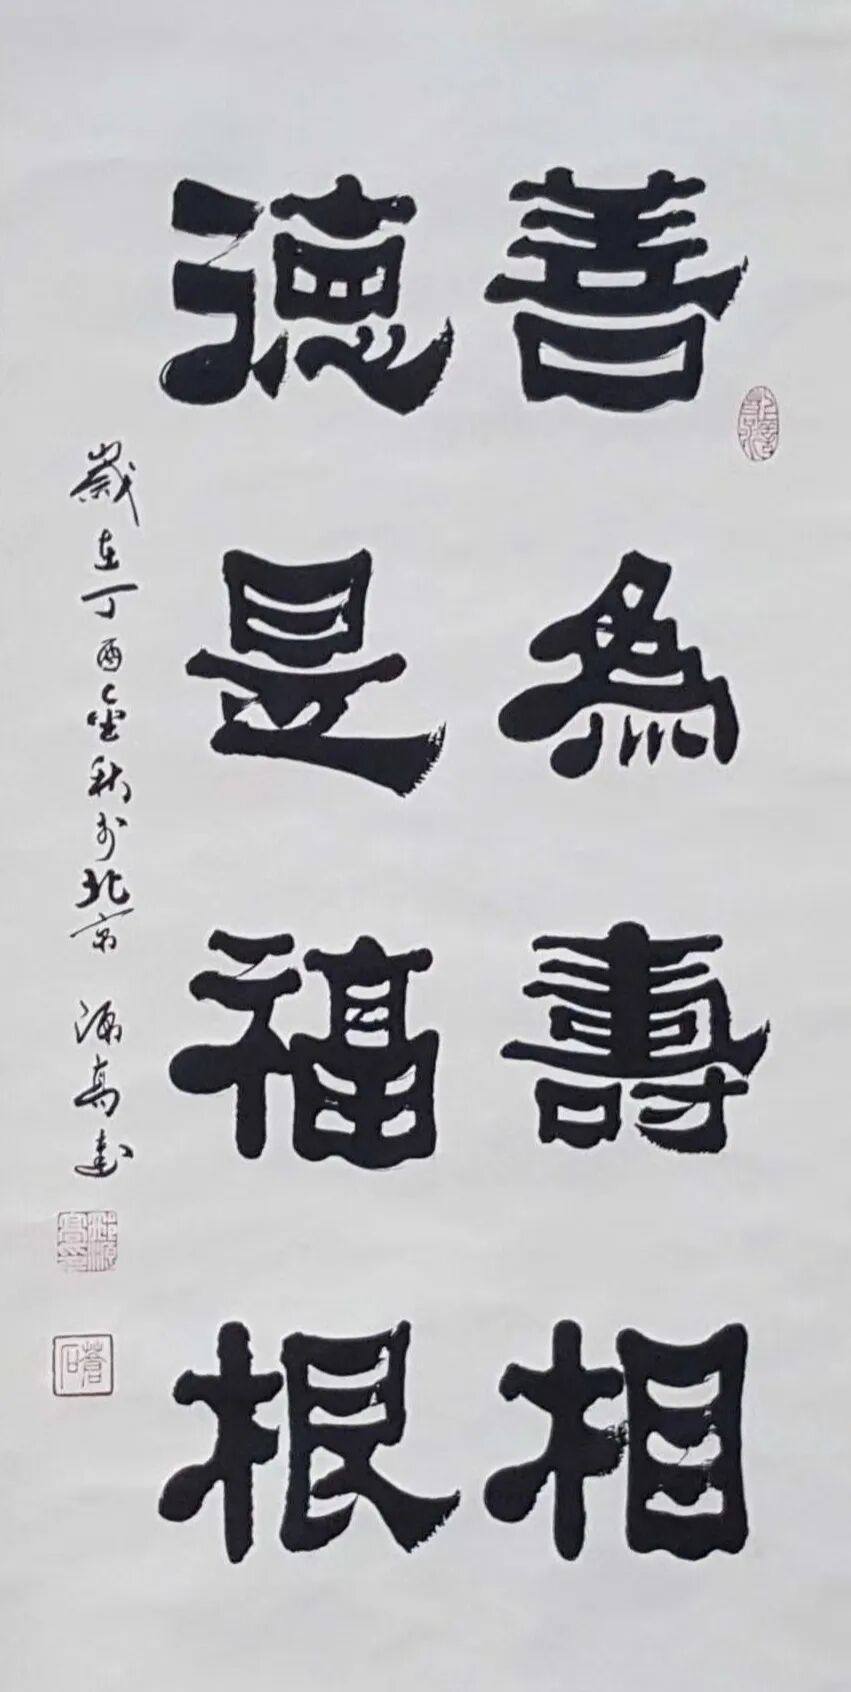 善為壽相
德是福根
歲在丁酉金秋於北京 源高書
蒼石